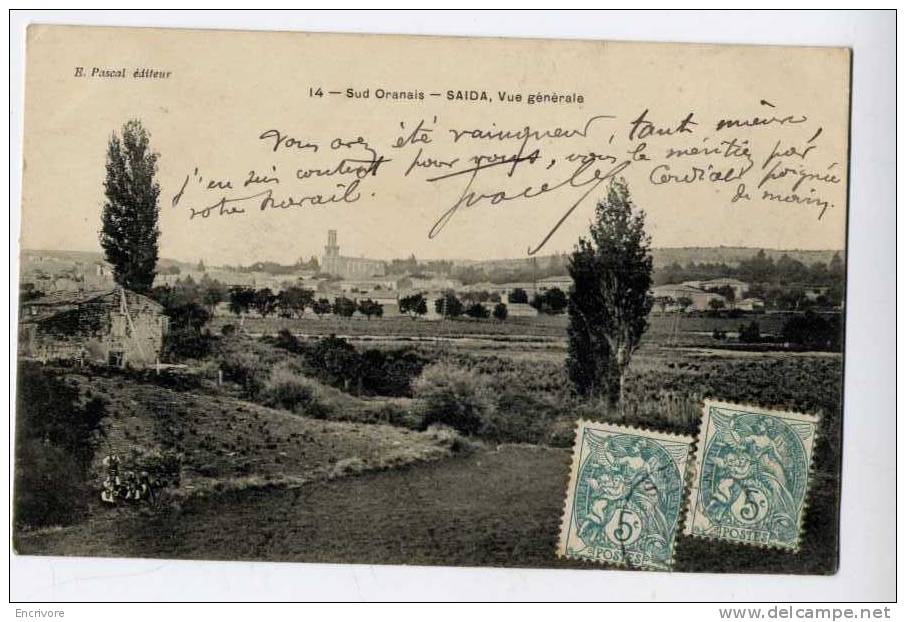 E. Pascal éditeur
14 — Sud Oranais — SAIDA, Vue générale
Vous avez été vainqueur, tant mieux,
j'en suis content pour vous, vous le méritiez par
votre travail. Cordiale poignée
de main,
5c
POSTES
5c
POSTES
Encrivore
www.delcampe.net